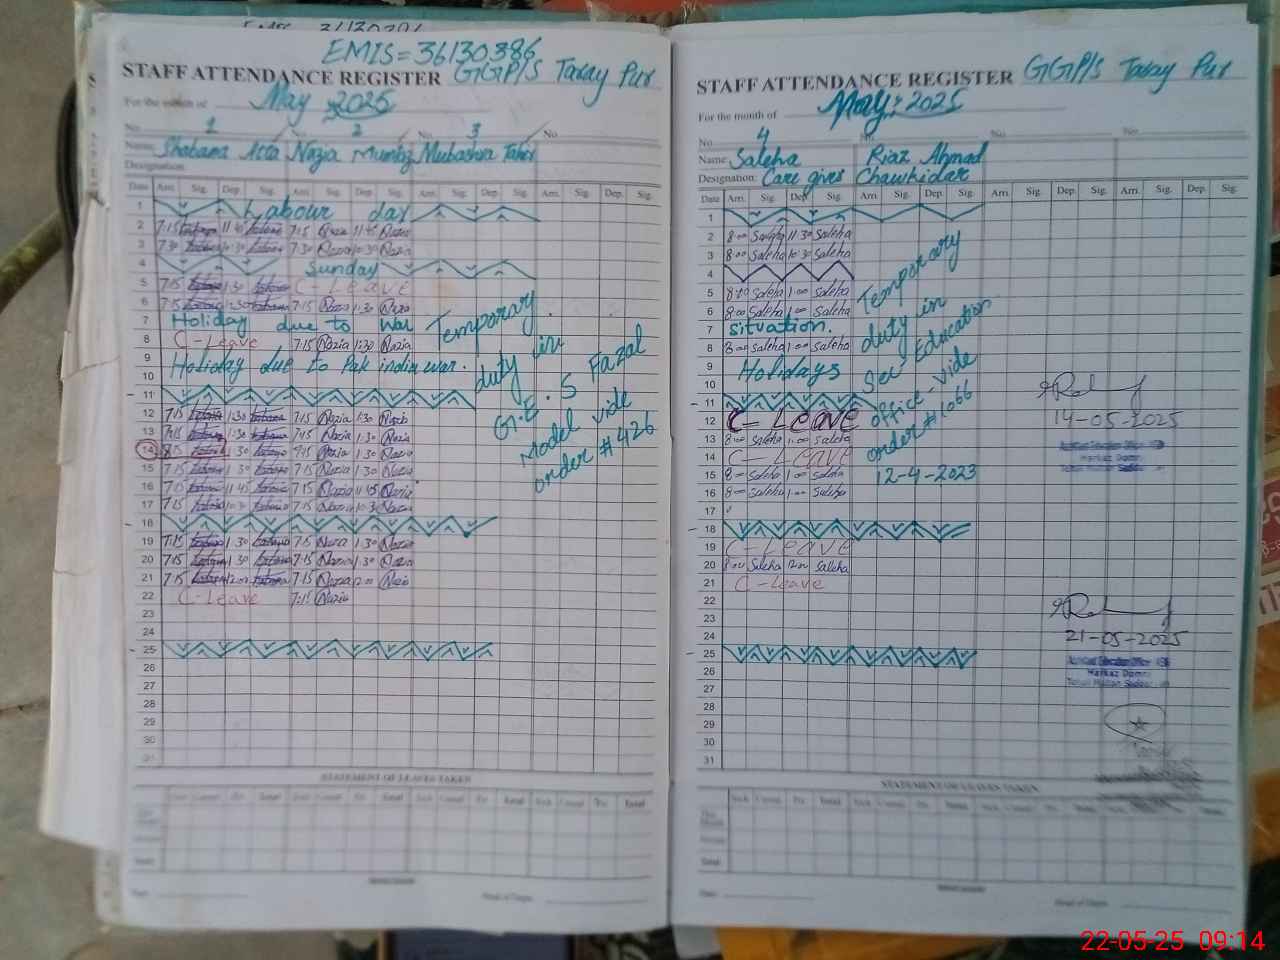 EMIS=36130386
STAFF ATTENDANCE REGISTER GGP/S Taray Pur
For the month of May 2025
No. 1 No. 2 No. 3 No.
Name: Shabana Atta Nazia Mumtaz Mubashra Taher
Designation:
Date Arr. Sig. Dep. Sig. Arr. Sig. Dep. Sig. Arr. Sig. Dep. Sig. Arr. Sig. Dep. Sig.
1 Labour day
2 7:15 11:45 7:15 Nazia 11:45 Nazia
3 7:30 10:30 7:30 Nazia 10:30 Nazia
4 Sunday
5 7:15 1:30 C-Leave
6 7:15 1:30 7:15 Nazia 1:30 Nazia
7 Holiday due to War
8 C-Leave 7:15 Nazia 1:30 Nazia
9 Holiday due to Pak india war.
10
11
12 7:15 1:30 7:15 Nazia 1:30 Nazia
13 7:15 1:30 7:15 Nazia 1:30 Nazia
14 1:30 Nazia 1:30 Nazia
15 7:15 1:30 7:15 Nazia 1:30 Nazia
16 7:15 11:45 7:15 Nazia 11:45 Nazia
17 7:15 10:30 7:15 Nazia 10:30 Nazia
18
19 7:15 1:30 7:15 Nazia 1:30 Nazia
20 7:15 1:30 7:15 Nazia 1:30 Nazia
21 7:15 12:00 7:15 Nazia 12:00 Nazia
22 C-Leave 7:15 Nazia
23
24
25
26
27
28
29
30
31
Temporary
duty in
G.E.S Fazal
Model vide
order # 426
STATEMENT OF LEAVES TAKEN
STAFF ATTENDANCE REGISTER GGP/S Taray Pur
For the month of May, 2025
No. 4 No. No. No.
Name: Saleha Riaz Ahmad
Designation: Care giver Chawkidar
Date Arr. Sig. Dep. Sig. Arr. Sig. Dep. Sig. Arr. Sig. Dep. Sig. Arr. Sig. Dep. Sig.
1
2 8:00 Saleha 11:30 Saleha
3 8:00 Saleha 10:30 Saleha
4
5 8:00 Saleha 1:00 Saleha
6 8:00 Saleha 1:00 Saleha
7 situation.
8 8:00 Saleha 1:00 Saleha
9 Holidays
10
11
12 C-Leave
13 8:00 Saleha 1:00 Saleha
14 C-Leave
15 8:00 Saleha 1:00 Saleha
16 8:00 Saleha 1:00 Saleha
17
18
19 C-Leave
20 8:00 Saleha 12:00 Saleha
21 C-Leave
22
23
24
25
26
27
28
29
30
31
Temporary
duty in
Sec Education
office-vide
order # 1066
12-4-2023
14-05-2025
Markaz
21-05-2025
Markaz
STATEMENT OF LEAVES TAKEN
22-05-25 09:14